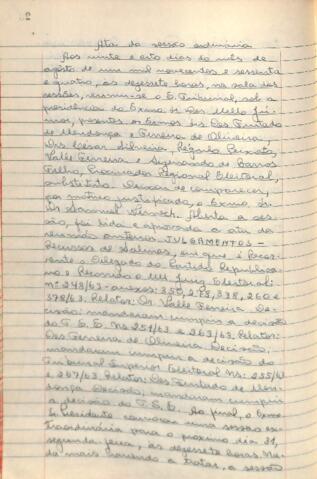 Ata da sessão ordinaria
Aos vinte e oito dias do mês de
agôsto de um mil novecentos e sessenta
e quatro, às dezesete horas, na sala das
sessões, reuniu-se o E. Tribunal, sob a
presidência do Exmo. Sr. Des. Mello Jú-
nior, presentes os Exmos. Srs. Des. Furtado
de Mendonça e Ferreira de Oliveira,
Drs. César Silveira, Régulo Peixoto,
Valle Ferreira e Sigismundo de Barros
Filho, Procurador Regional Eleitoral,
substituto. Deixou de comparecer,
por motivo justificado, o Exmo. Sr.
Dr. Samuel Aberta a ses-
são, foi lida e aprovada a ata da
reunião anterior. JULGAMENTOS -
Recursos de Salinas, em que é Recor-
rente o Delegado do Partido Republica-
no e Recorrido o MM. Juiz Eleitoral:
nº 248/63 - anexos: 350, 278, 338, 260 e
378/63. Relator: Dr. Valle Ferreira. De-
cisão: mandaram cumprir a decisão
do T.S.E. Ns. 251/63 e 263/63. Relator:
Des. Ferreira de Oliveira. Decisão:
mandaram cumprir a decisão do
Tribunal Superior Eleitoral. Ns: 255/63
e 267/63. Relator: Des. Furtado de Men-
donça. Decisão: mandaram cumprir
a decisão do T.S.E. Ao final, o Exmo.
Sr. Presidente convocou uma sessão ex-
traordinária para o proximo dia 31,
segunda feira, às dezesete horas. Na-
da mais havendo a tratar, a sessão